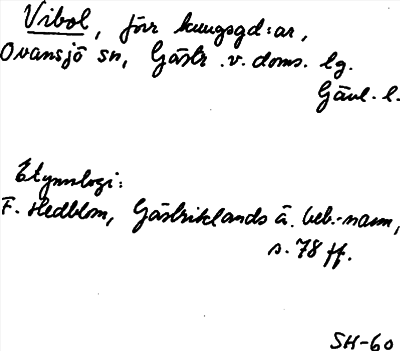 Vibol, förr kungsgd:ar,
Ovansjö sn, Gästr. v. doms. lg.
Gävl. l.
Etymologi:
F. Hedblom, Gästriklands ä. beb.-namn,
s. 78 ff.
SH-60